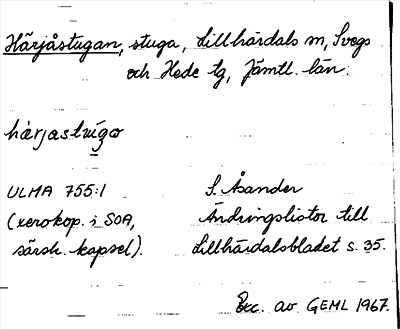 Härjåstugan, stuga, Lillhärdals sn, Svegs
och Hede tg, Jämtl. län.
hä̀rjastúga
ULMA 755:1
(xerokop. i SOA,
särsk. kapsel).
S. Åsander
Ändringslistor till
Lillhärdalsbladet s. 35.
Exc. av GEML 1967.